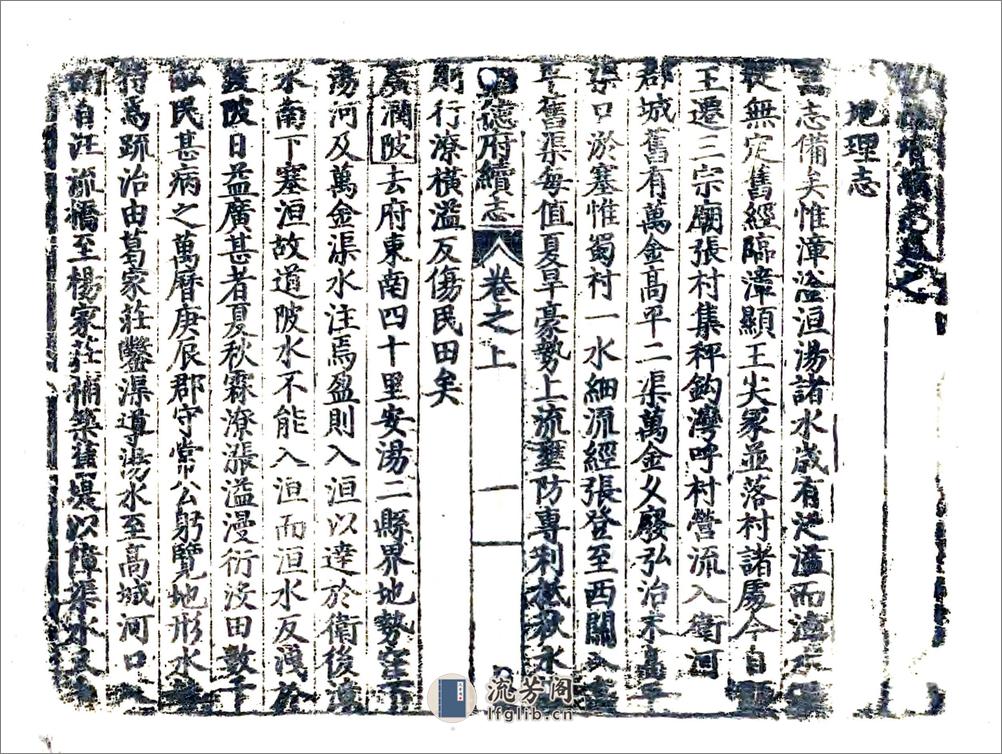 續志卷之
地理志
志備矣惟漳滏洹湯諸水歲有泛溢而漳水
徙無定舊經臨漳顯王尖冢並落村諸處今自
王遷三宗廟張村集秤鈎灣呼村營流入衛河
郡城舊有萬金高平二渠萬金久廢弘治末高平
渠口淤塞惟蜀村一水細流經張登至西關入
舊渠每值夏旱豪勢上流壅防專利秋水
德府續志 卷之上 一
則行潦橫溢反傷民田矣
廣潤陂去府東南四十里安湯二縣界地勢窪下
湯河及萬金渠水注焉盈則入洹以達於衛後
水南下塞洹故道陂水不能入洹而洹水反淺於
陂日益廣甚者夏秋霖潦漲溢漫衍沒田數千
民甚病之萬曆庚辰郡守常公躬覽地形水
焉疏治由葛家莊鑿渠導湯水至高城河口入
自汪流橋至楊家莊補築舊堤以障渠水又
流芳阁
lfglib.cn